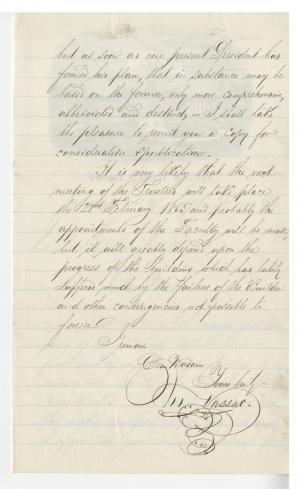 but as soon as our present President has
formed his plan, that in substance may be
based on the former, only more comprehensive,
abbriviated and destinct, – I shall take
the pleasure to remit you a Copy for
consideration & publication.
It is very likely that the next
meeting of the Trustees will take place
the 22nd February 1865 and probably the
appointments of the Faculty will be made,
but it will greatly depend upon the
progress of the Building which has lately
suffered much by the Failure of the Builder
and other contingencies not possible to
foresee.
I remain
Dear Madam
Yours truly
M. Vassar.